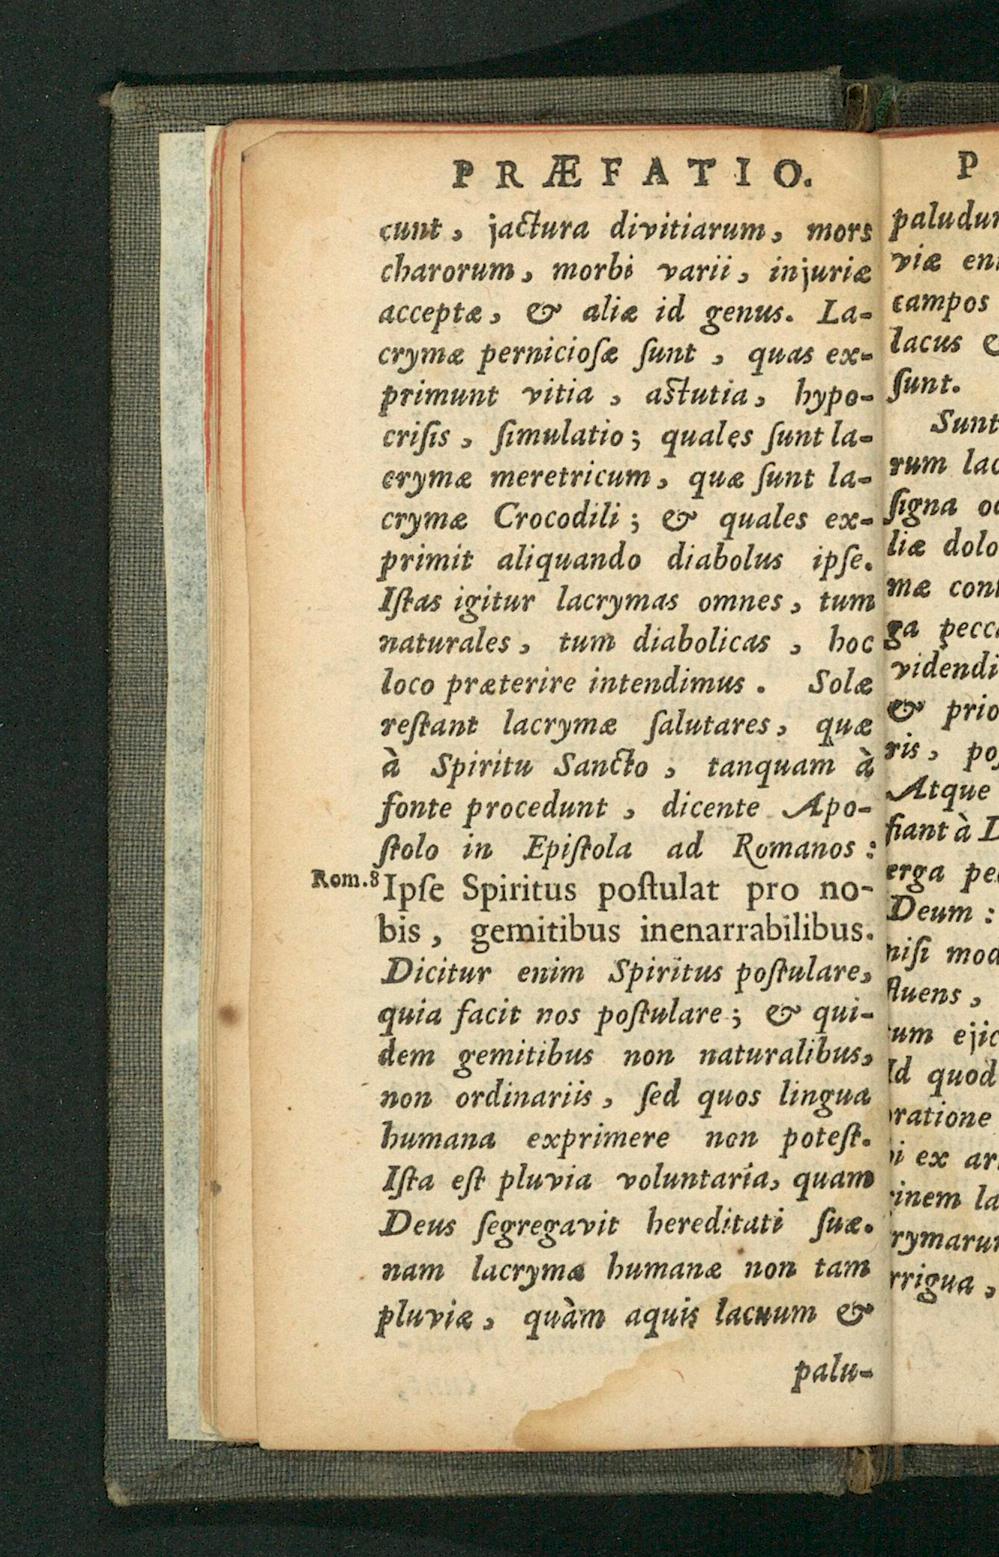 PRÆFATIO.
cunt, jactura divitiarum, mors
charorum, morbi varii, injuriæ
acceptæ, & aliæ id genus. La-
crymæ pernicioſæ ſunt, quas ex-
primunt vitia, aſtutia, hypo-
criſis, ſimulatio; quales ſunt la-
crymæ meretricum, quæ ſunt la-
crymæ Crocodili; & quales ex-
primit aliquando diabolus ipſe.
Iſtas igitur lacrymas omnes, tum
naturales, tum diabolicas, hoc
loco præterire intendimus. Solæ
reſtant lacrymæ ſalutares, quæ
à Spiritu Sancto, tanquam à
fonte procedunt, dicente Apo-
ſtolo in Epiſtola ad Romanos:
Rom.8
Ipſe Spiritus poſtulat pro no-
bis, gemitibus inenarrabilibus.
Dicitur enim Spiritus poſtulare,
quia facit nos poſtulare; & qui-
dem gemitibus non naturalibus,
non ordinariis, ſed quos lingua
humana exprimere non poteſt.
Iſta eſt pluvia voluntaria, quam
Deus ſegregavit hereditati ſuæ.
nam lacrymæ humanæ non tam
pluviæ, quàm aquis lacuum &
palu-
P
viæ
campos
lacus
ſunt.
Sunt
rum
ſigna
liæ
mæ
ga
videndi
&
ris,
Atque
fiant à
erga
Deum:
niſi
Id quod
ex